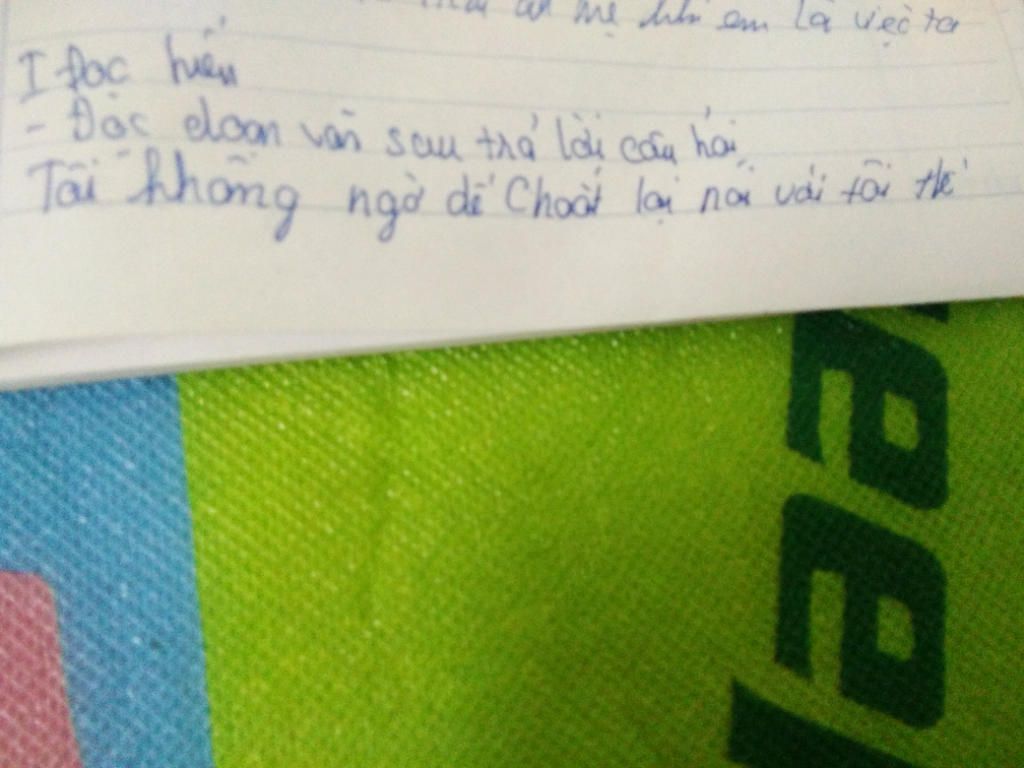 mẹ khi em là việc ta
I Đọc hiểu
- Đọc đoạn văn sau trả lời câu hỏi
Tôi không ngờ dế Choắt lại nói với tôi thế